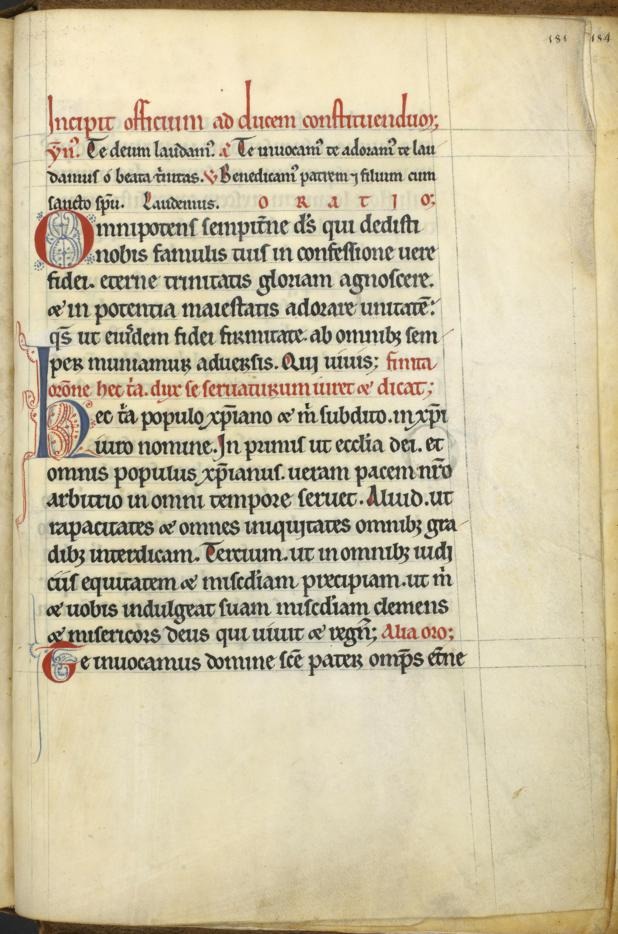 181 184
Incipit officium ad ducem constituendum;
ẏn̄. Te deum laudam᷒. a᷒ Te inuocam᷒ te adoram᷒ te lau
damus o beata t̄nitas. ℣ Benedicam᷒ patrem ⁊ filium cum
sancto sp̄u. Laudemus. ORATIO;
Omnipotens sempit̄ne d̄s qui dedisti
nobis famulis tuis in confessione uere
fidei. eterne trinitatis gloriam agnoscere.
& in potentia maiestatis adorare unitatē.
q̄s ut eiusdem fidei firmitate. ab omnibꝫ sem
per muniamur aduersis. Qui uiuis; finita
orōne hec t̄a. dux se seruaturum iuret & dicat;
Hec t̄a populo xp̄iano & m̄ subdito. in xp̄i
iuro nomine. In primis ut eccl̄ia dei. et
omnis populus xp̄ianus. ueram pacem nr̄o
arbitrio in omni tempore seruet. Aliud. ut
rapacitates & omnes iniquitates omnibꝫ gra
dibꝫ interdicam. Tercium. ut in omnibꝫ iudi
ciis equitatem & misc̄diam precipiam. ut m̄
& uobis indulgeat suam misc̄diam clemens
& misericors deus qui uiuit & regn̄; Alia oro;
Te inuocamus domine sc̄e pater omp̄s et̄ne